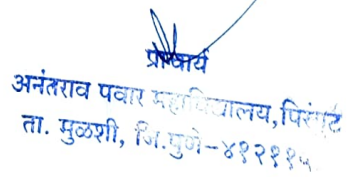 प्राचार्य
अनंतराव पवार महाविद्यालय, पिरंगुट
ता. मुळशी, जि.पुणे-४१२११५